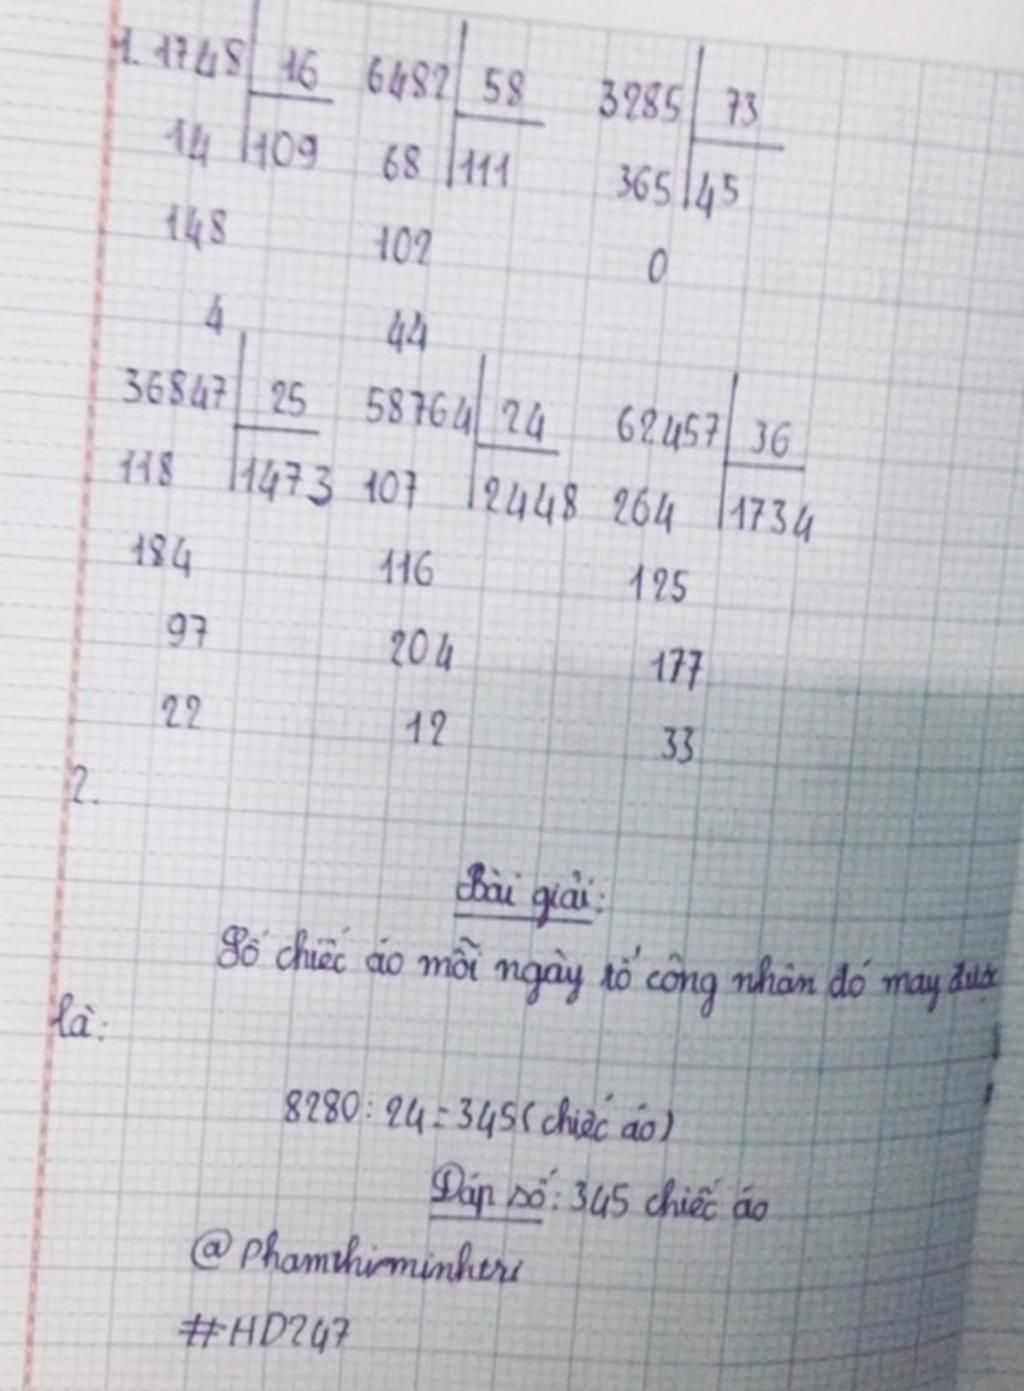 1. 1748 16 6482 58 3285 73
14 109 68 111 365 45
148 102 0
4 44
36847 25 58764 24 62457 36
118 1473 107 2448 264 1734
184 116 125
97 204 177
22 12 33
2.
Bài giải:
Số chiếc áo mỗi ngày tổ công nhân đó may được
là:
8280 : 24 = 345 (chiếc áo)
Đáp số: 345 chiếc áo
@phamthiminhtri
#HD247